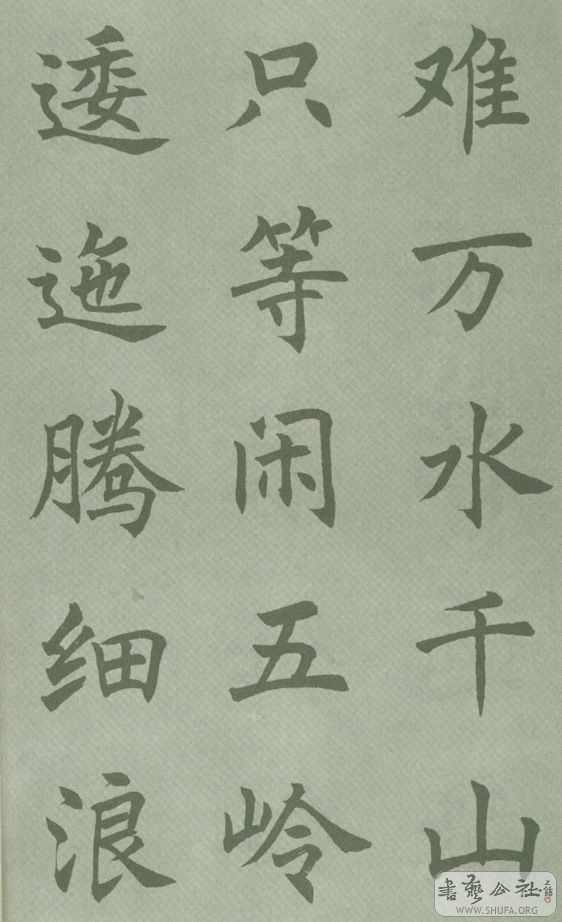 难万水千山
只等闲五岭
逶迤腾细浪
書藝公社
WWW.SHUFA.ORG